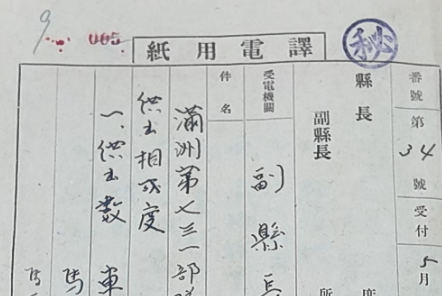 005
譯電用紙
秘
番號第34號受付5月
縣長
副縣長
受電機關 副縣長
件名
滿洲第七三一部隊
供出相成度
一、供出數 車
馬